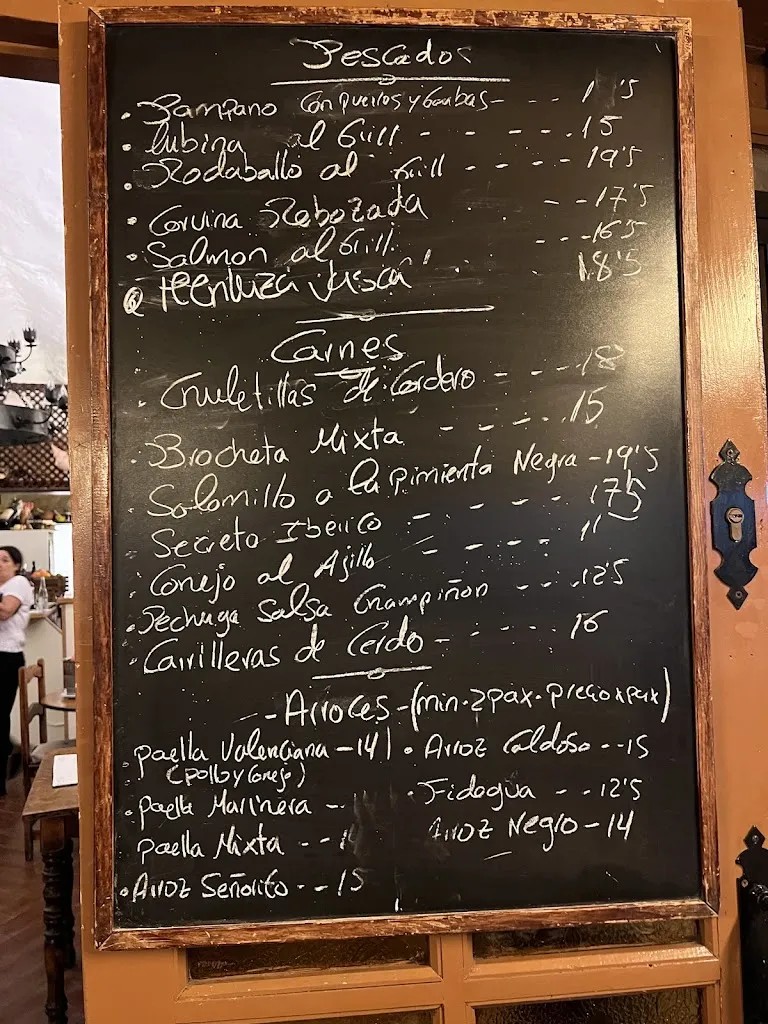 Pescados
· Pampano con puerros y Gambas - - -
· Lubina al Grill - - - - - 15
· Rodaballo al Grill - - - - - 19'5
· Corvina Rebozada - - 17'5
· Salmon al Grill. - - - 16'5
Vasca 18'5
Carnes
· Chuletillas de Cordero - - - 18
· Brocheta Mixta - - - - 15
· Solomillo a la pimienta Negra - 19'5
· Secreto Iberico - - - - 17'5
· Conejo al Ajillo - - - - 11
· Pechuga Salsa Champiñon - - - 12'5
· Carrilleras de Cerdo - - - - 16
- Arroces - (min. 2 pax. precio x pax)
· paella Valenciana - 14
(pollo y conejo)
· paella Marinera - -
paella Mixta - -
· Arroz Señorito - - 15
· Arroz Caldoso - - 15
· Fidegua - - 12'5
Arroz Negro - 14